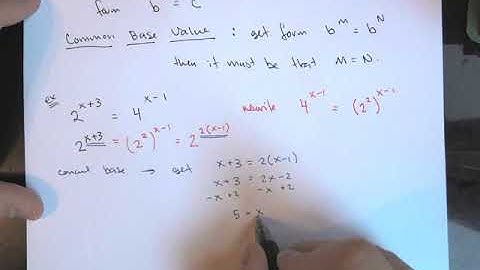 form b = C
Common Base Value : get form b^M = b^N
then it must be that M = N.
ex 2^(x+3) = 4^(x-1) rewrite 4^(x-1) = (2^2)^(x-1)
2^(x+3) = (2^2)^(x-1) = 2^(2(x-1))
cancel base → get x+3 = 2(x-1)
x+3 = 2x-2
-x +2 -x +2
5 = x